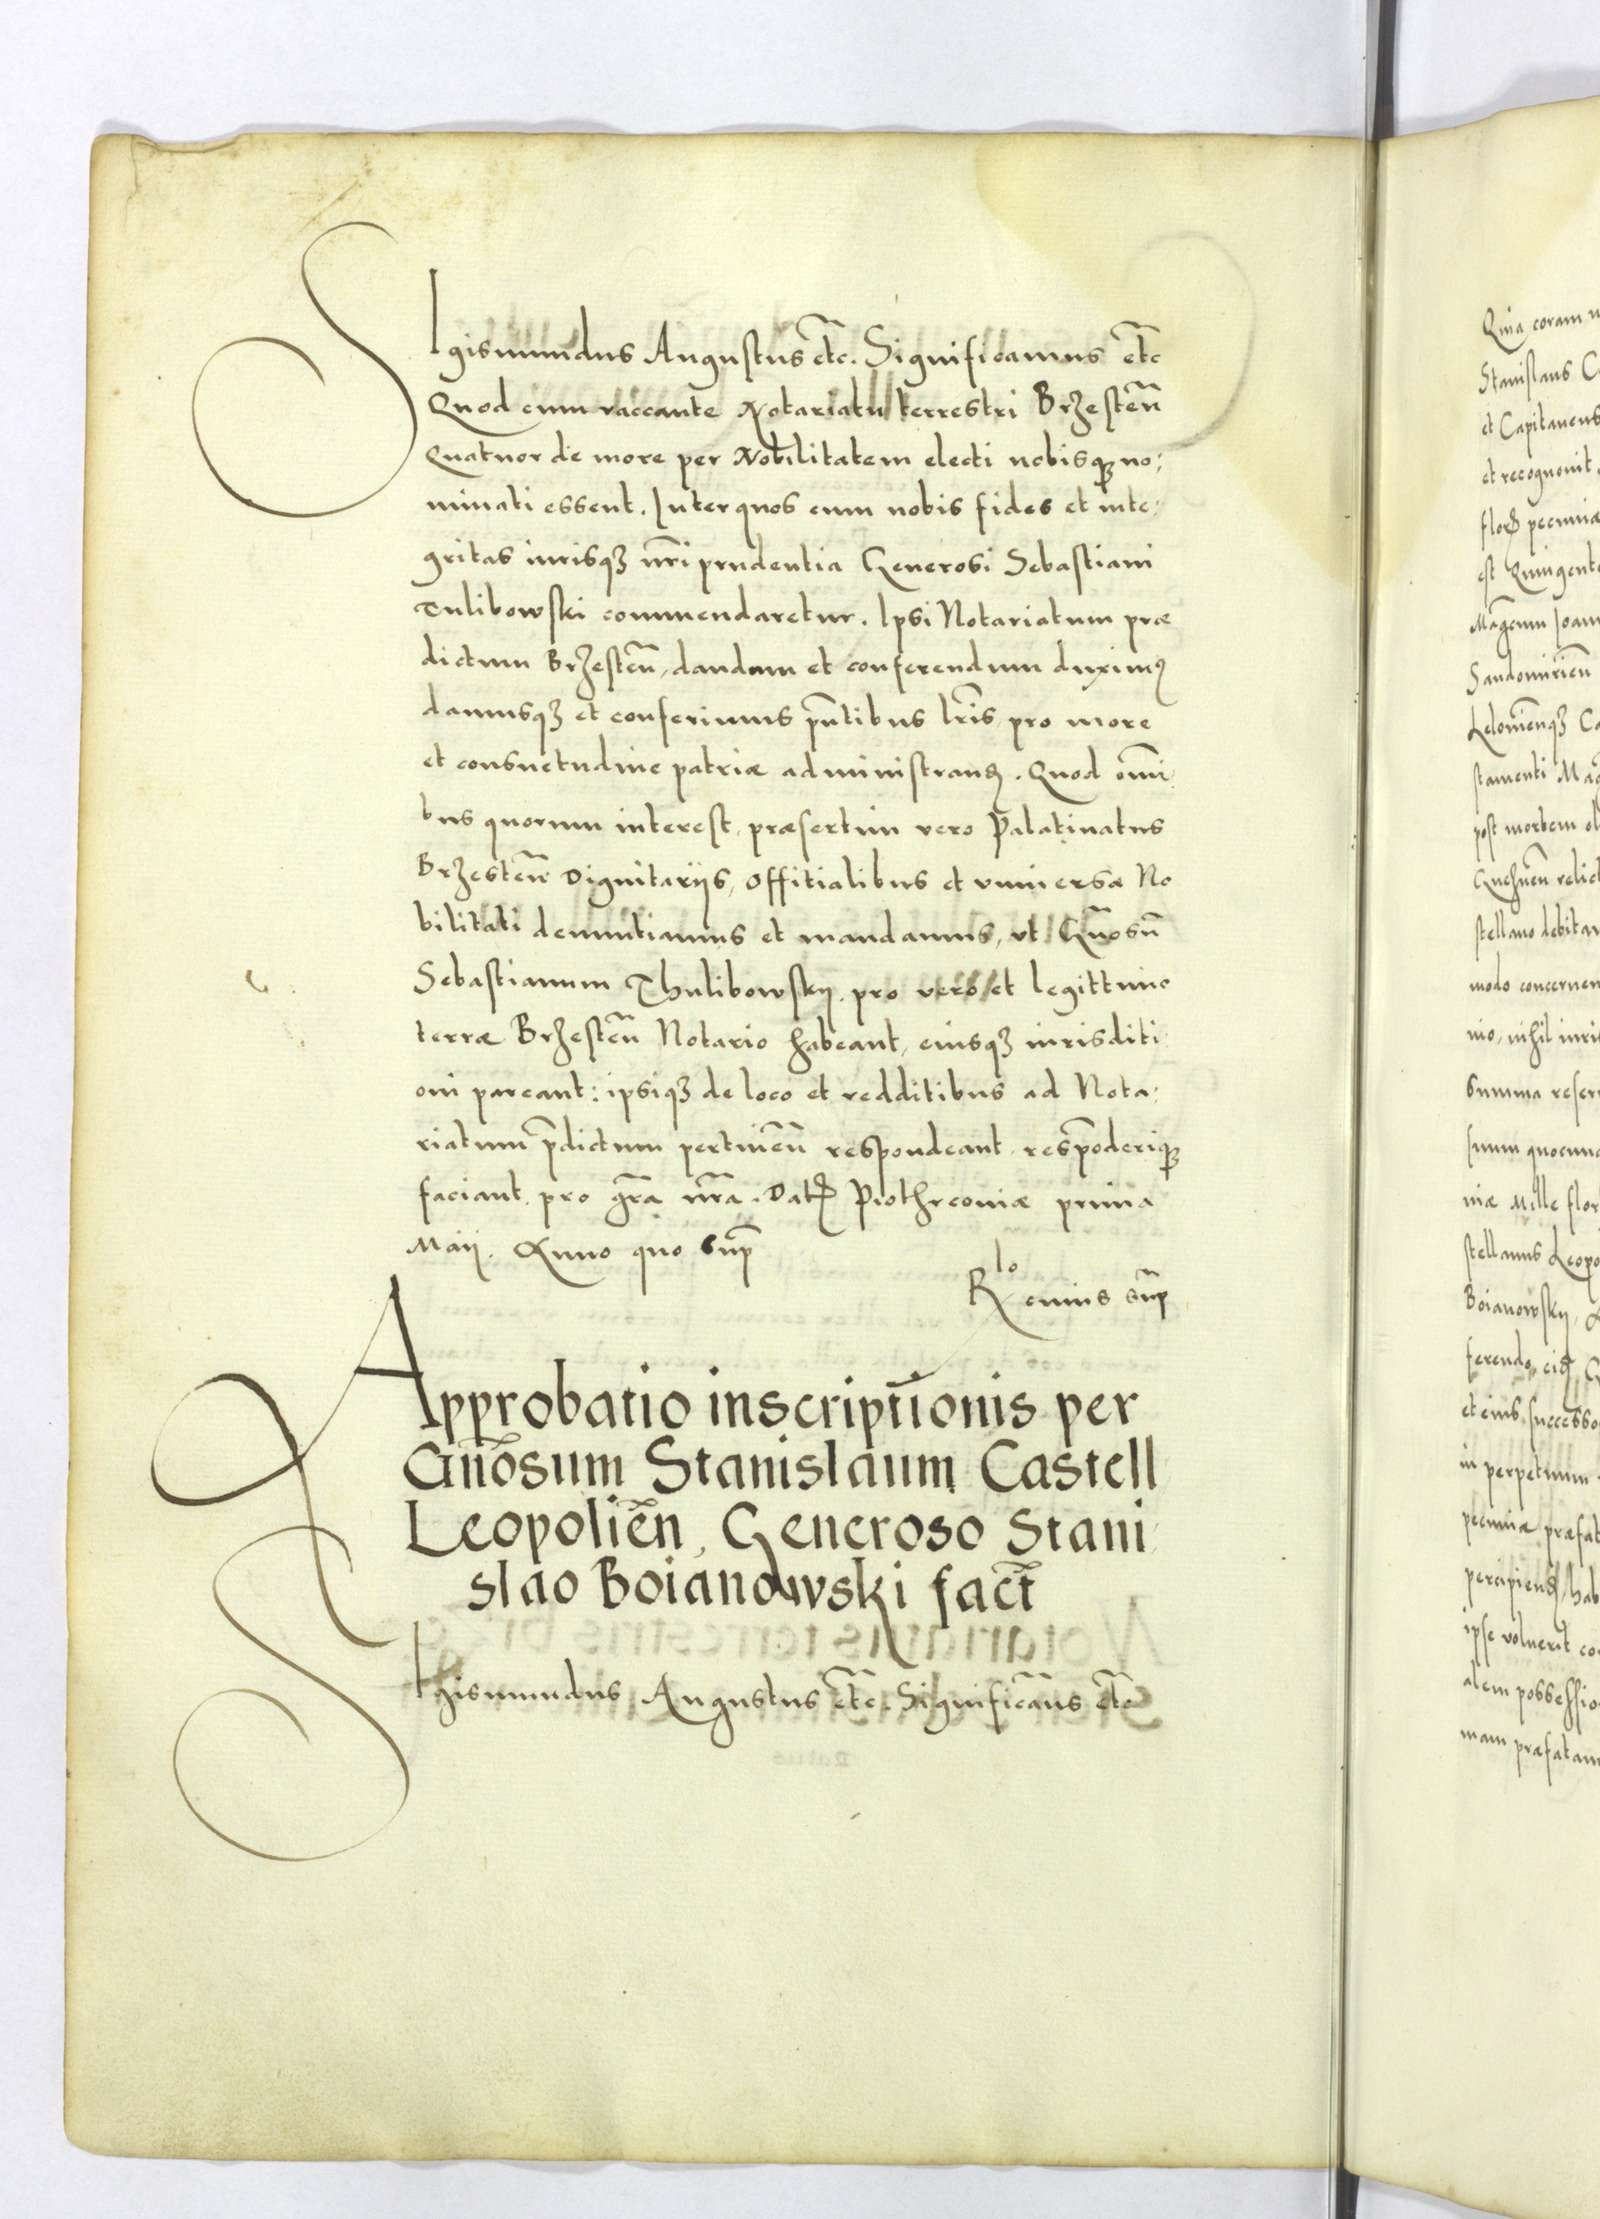 SIgismundus Augustus etc̃. Significamus etc̃
Quod cum vaccante Notariatu terrestri Brzesteñ
Quatuor de more per Nobilitatem electi nobisqȝ no:
minati essent. Inter quos cum nobis fides et inte:
gritas iurisqȝ nr̃i prudentia Generosi Sebastiani
Tulibowski commendaretur. Ipsi Notariatum præ
dictum Brzesteñ, dandum et conferendum duximꝰ
damusqȝ et conferimus pñtibus lr̃is, pro more
et consuetudine patriæ administrand. Quod om̃i
bus quorum interest, præsertim vero Palatinatus
Brzesteñ Dignitariis, Offitialibus et vniuersæ No
bilitati denuntiamus et mandamus, vt Gñosũ
Sebastianum Thulibowskij, pro vero et legittimo
terræ Brzesteñ Notario habeant, eiusqȝ iurisditi
oni pareant: ipsiqȝ de loco et redditibus ad Nota:
riatum p̃dictum pertineñ respondeant, respõderiqȝ
faciant, pro gr̃a nr̃a. Dat Piothrcoviæ prima
Maij. Anno quo sup̃
Rlo
eiuius sup̃
Approbatio inscriptionis per
Gñosum Stanislaum Castell
Leopolieñ, Generoso Stani
slao Boianowski fact̃
SIgismundus Augustus etc̃. Significam̃us etc̃
Quia coram
Stanislaus
et Capitaneus
et recognouit
pecuniæ
est Quingent
Sandomirieñ
stamenti
post mortem
stellano debitam
modo concernen
nio, nihil iuris
summa reser
suum quocunq
niæ Mille flor
stellanus Leopo
Boianowskij
ferendo
et eius successo
in perpetuum
pecuniæ præfat
percipiend, hab
ipse voluerit
alem possessio
mam præfatam